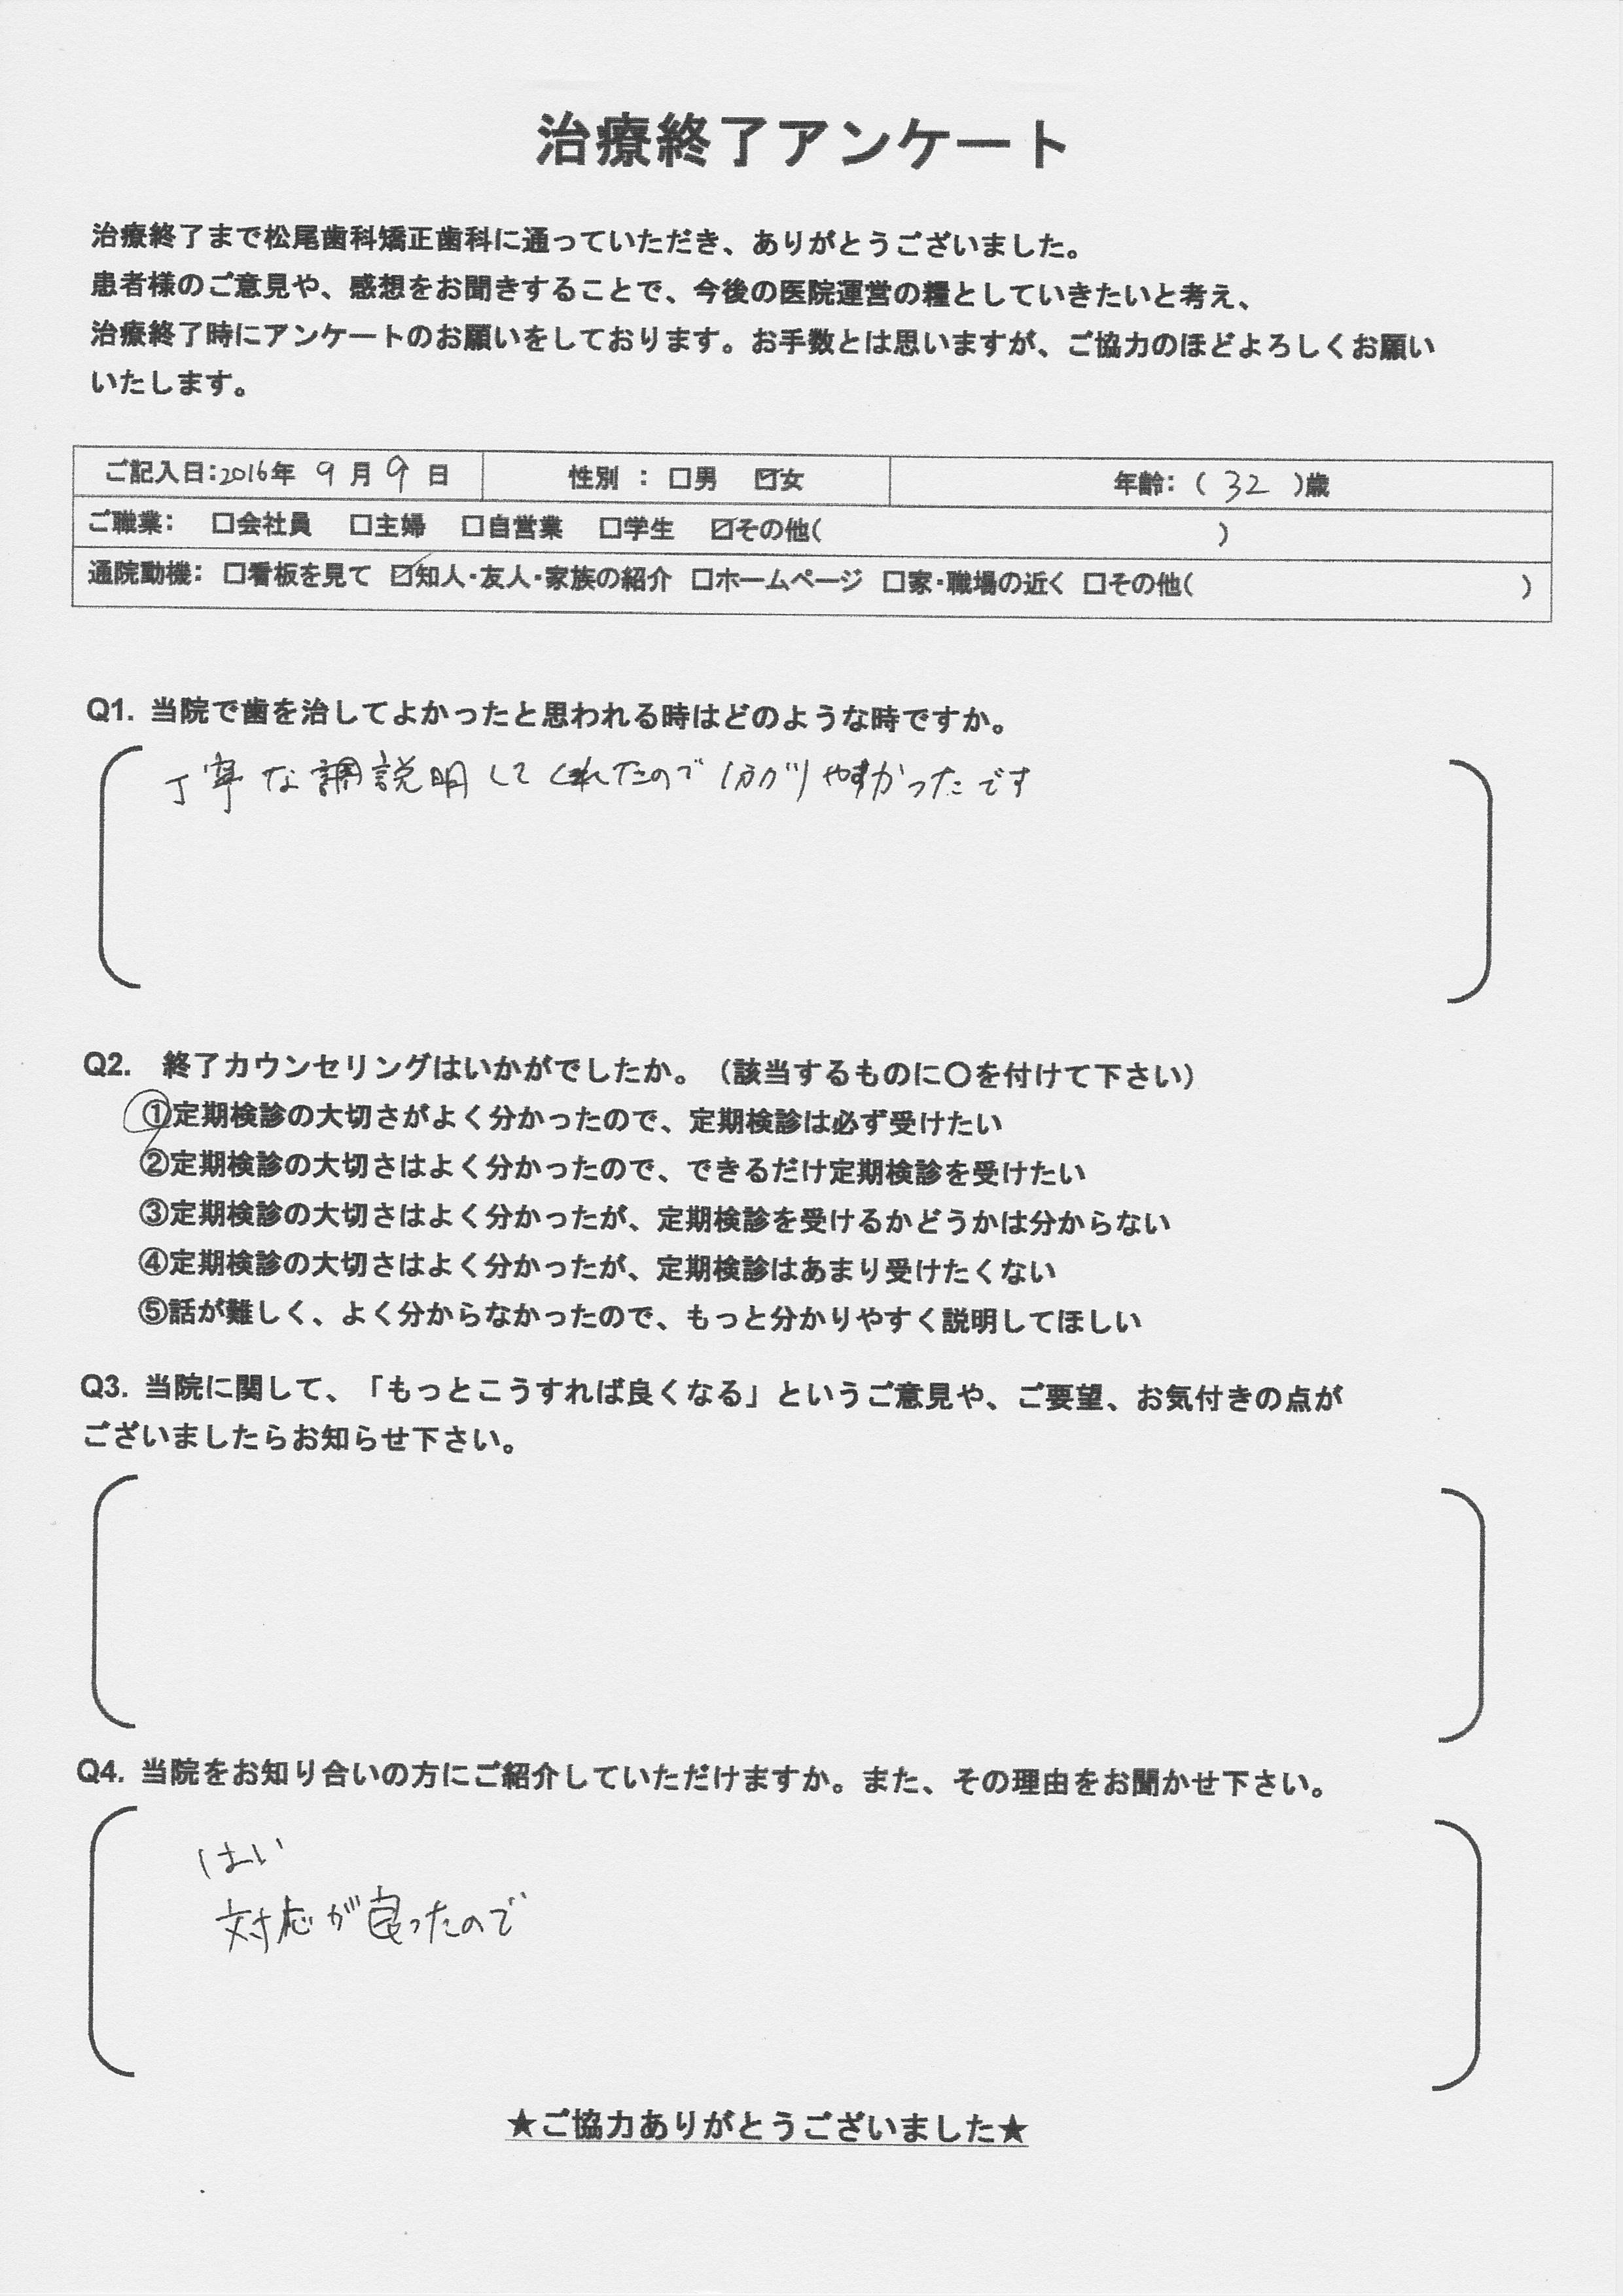 治療終了アンケート
治療終了まで松尾歯科矯正歯科に通っていただき、ありがとうございました。
患者様のご意見や、感想をお聞きすることで、今後の医院運営の糧としていきたいと考え、
治療終了時にアンケートのお願いをしております。お手数とは思いますが、ご協力のほどよろしくお願い
いたします。
ご記入日：2016年 9月 9日 性別 ： □男 ☑女 年齢：（ 32 ）歳
ご職業： □会社員 □主婦 □自営業 □学生 ☑その他（ ）
通院動機： □看板を見て ☑知人・友人・家族の紹介 □ホームページ □家・職場の近く □その他（ ）
Q1. 当院で歯を治してよかったと思われる時はどのような時ですか。
丁寧な説明してくれたので分かりやすかったです
Q2. 終了カウンセリングはいかがでしたか。（該当するものに〇を付けて下さい）
①定期検診の大切さがよく分かったので、定期検診は必ず受けたい
②定期検診の大切さはよく分かったので、できるだけ定期検診を受けたい
③定期検診の大切さはよく分かったが、定期検診を受けるかどうかは分からない
④定期検診の大切さはよく分かったが、定期検診はあまり受けたくない
⑤話が難しく、よく分からなかったので、もっと分かりやすく説明してほしい
Q3. 当院に関して、「もっとこうすれば良くなる」というご意見や、ご要望、お気付きの点が
ございましたらお知らせ下さい。
Q4. 当院をお知り合いの方にご紹介していただけますか。また、その理由をお聞かせ下さい。
はい
対応が良ったので
★ご協力ありがとうございました★